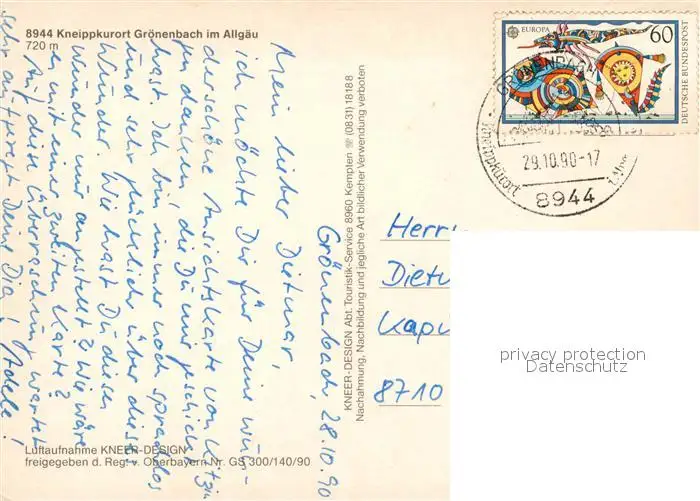 8944 Kneippkurort Grönenbach im Allgäu
720 m
EUROPA
60
DEUTSCHE BUNDESPOST
29.10.90-17
8944
Kneippkurort
Grönenbach, 28.10.90
Mein lieber Dietmar,
ich möchte Dir für Deine wun-
derschöne Ansichtskarte von Kitzin
zu danken, die Du mir geschickt
hast. Ich bin immer noch sprachlos
und sehr glücklich über dieses
Wunder. Wie hast Du dieses
Wunder nur angestellt? Wie wäre
es mit einer zweiten Karte?
Auf diese Überraschung wartet
sehr aufgeregt Deine
KNEER-DESIGN Abt. Touristik-Service 8960 Kempten ☏ (0831) 18188
Nachahmung, Nachbildung und jegliche Art bildlicher Verwendung verboten
Herrn
Dietm
Kapu
8710
privacy protection
Datenschutz
Luftaufnahme KNEER-DESIGN
freigegeben d. Reg. v. Oberbayern Nr. GS 300/140/90